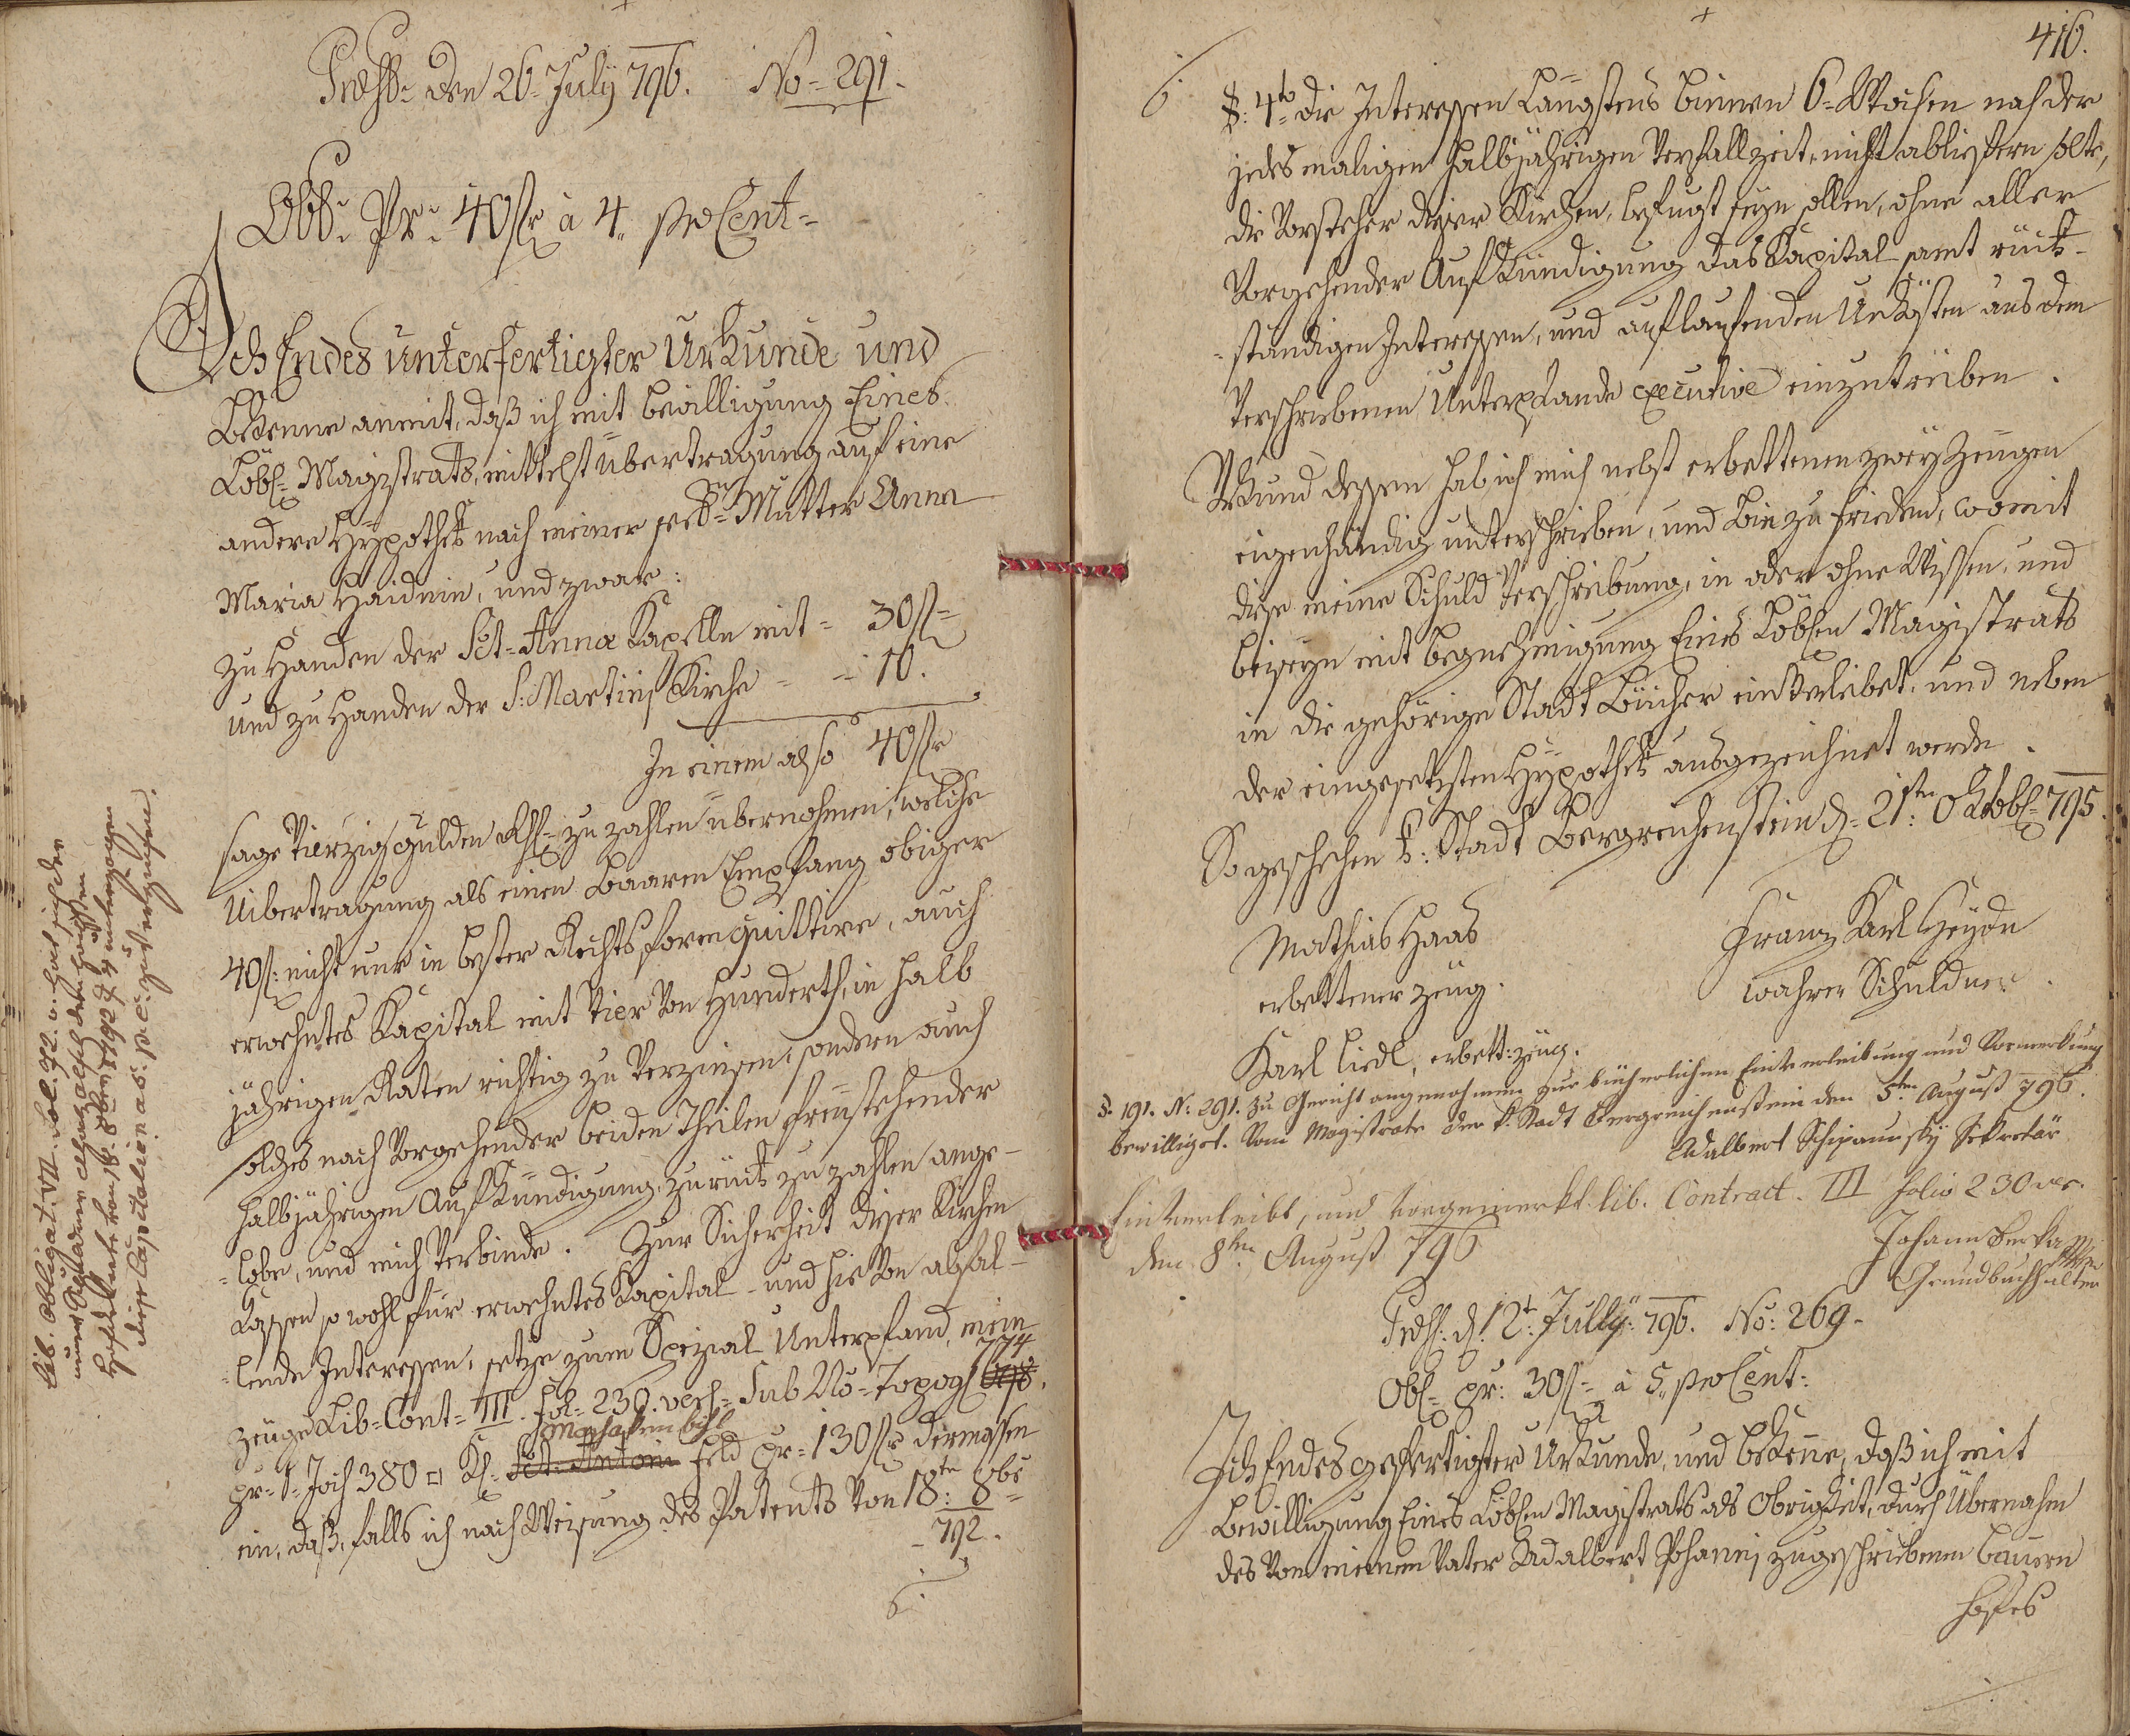 Præst: den 26= July 796. No= 291.
Obl: Pr: 40 fl à 4„ proCent=
Ich Endes unterfertigter Urkunde und
Bekenne anmit, daß ich mit bewilligung Eines
Löbl= Magistrats, mittelst übertragung auf eine
andere Hypothek nach meiner Mutter Anna
Maria Haidnin, und zwar:
zu Handen der Sct= Anna Kapelle mit = 30 fl=
und zu Handen der S: Martins Kirche = = 10.
In einem also 40 fl
sage Vierzig gulden zu zahlen übernohmen, welche
Uibertragung als einen Baaren Empfang obiger
40 fl: nicht nur in bester Rechtsform quittire, auch
erwehntes Kapital mit Vier Von Hunderth, in halb
jährigen Raten richtig zu Verzinsen, sondern auch
solches nach Vorgehender beiden Theilen freustehender
halbjährigen Aufkündigung zurück zu zahlen ange-
=lobe, und mich Verbinde. Zur Sicherheit dieser Kirchen
Kassen so wohl für erwehntes Kapital - und hievon abfal-
=lende Interessen, setze zum Spezial Unterpfand, mein
774
zeuge Lib= Cont= III. fol= 230. vers= Sub No= Topogr
pr= 1= Joch 380 □ Kl: Sct: Antoni feld pr= 130 fl dermassen
ein, daß, falls ich nach Weisung des Patents Von 18ten 8br
792.
lib. Obligat. VII. Fol. 92. a. hat sich der
diese Capitalien a 5. pC: zu verzinsen.
416.
§: 4to die Interessen Längstens binnen 6= Wochen nach der
jedesmaligen halbjährigen Verfallzeit nicht abliefern solte,
die Vorsteher dieser Kirchen, befugt seyn sollen, ohne aller
Vorgehender Aufkündigung das Kapital samt rück-
=ständigen Interessen, und auflaufenden Unkösten aus dem
Verschriebenen Unterpfande executive einzutreiben.
Urkund dessen hab ich mich nebst erbettenen zwey Zeugen
eigenhändig unterschrieben, und bin zu frieden, womit
diese meine Schuld Verschreibung, in oder ohne Wissen, und
beiseyn mit begnehmigung Eines Löblen Magistrats
in die gehörige Stadt Bücher einverleibet, und neben
der eingesetzten Hypothek ausgezeichnet werde.
So geschehen k: Stadt Bergreichenstein d= 21ten Oktobr= 795.
Mathias Haas
erbettener zeug.
Franz Karl Heydn
wahrer Schuldner.
Karl Liedl, erbett: zeug.
S. 191. No: 291. zu Gericht angenohmen zur bücherlichen Einverleibung und Vormerkung
bewilliget. Vom Magistrate der k. Stadt Bergreichenstein den 5ten August 796.
Adalbert Schipansky Sekretär
Einverleibt, und Vorgemerkt lib. Contract. III folio 230 ver.
den 8ten August 796
Johann Berka
Grundbuchhalter
Præs: d: 12t: Jully: 796. No: 269.
Obl= pr: 30 fl= à 5„ proCent:
Ich Endesgefertigter Urkunde, und bekenne, daß ich mit
Bewilligung Eines Löblen Magistrats als Obrigkeit, durch Übernahm
des Von meinem Vater Adalbert Johanni zugeschriebenen Bauern
hofes